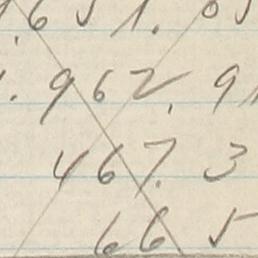 .651.05
.962.9
467.3
665